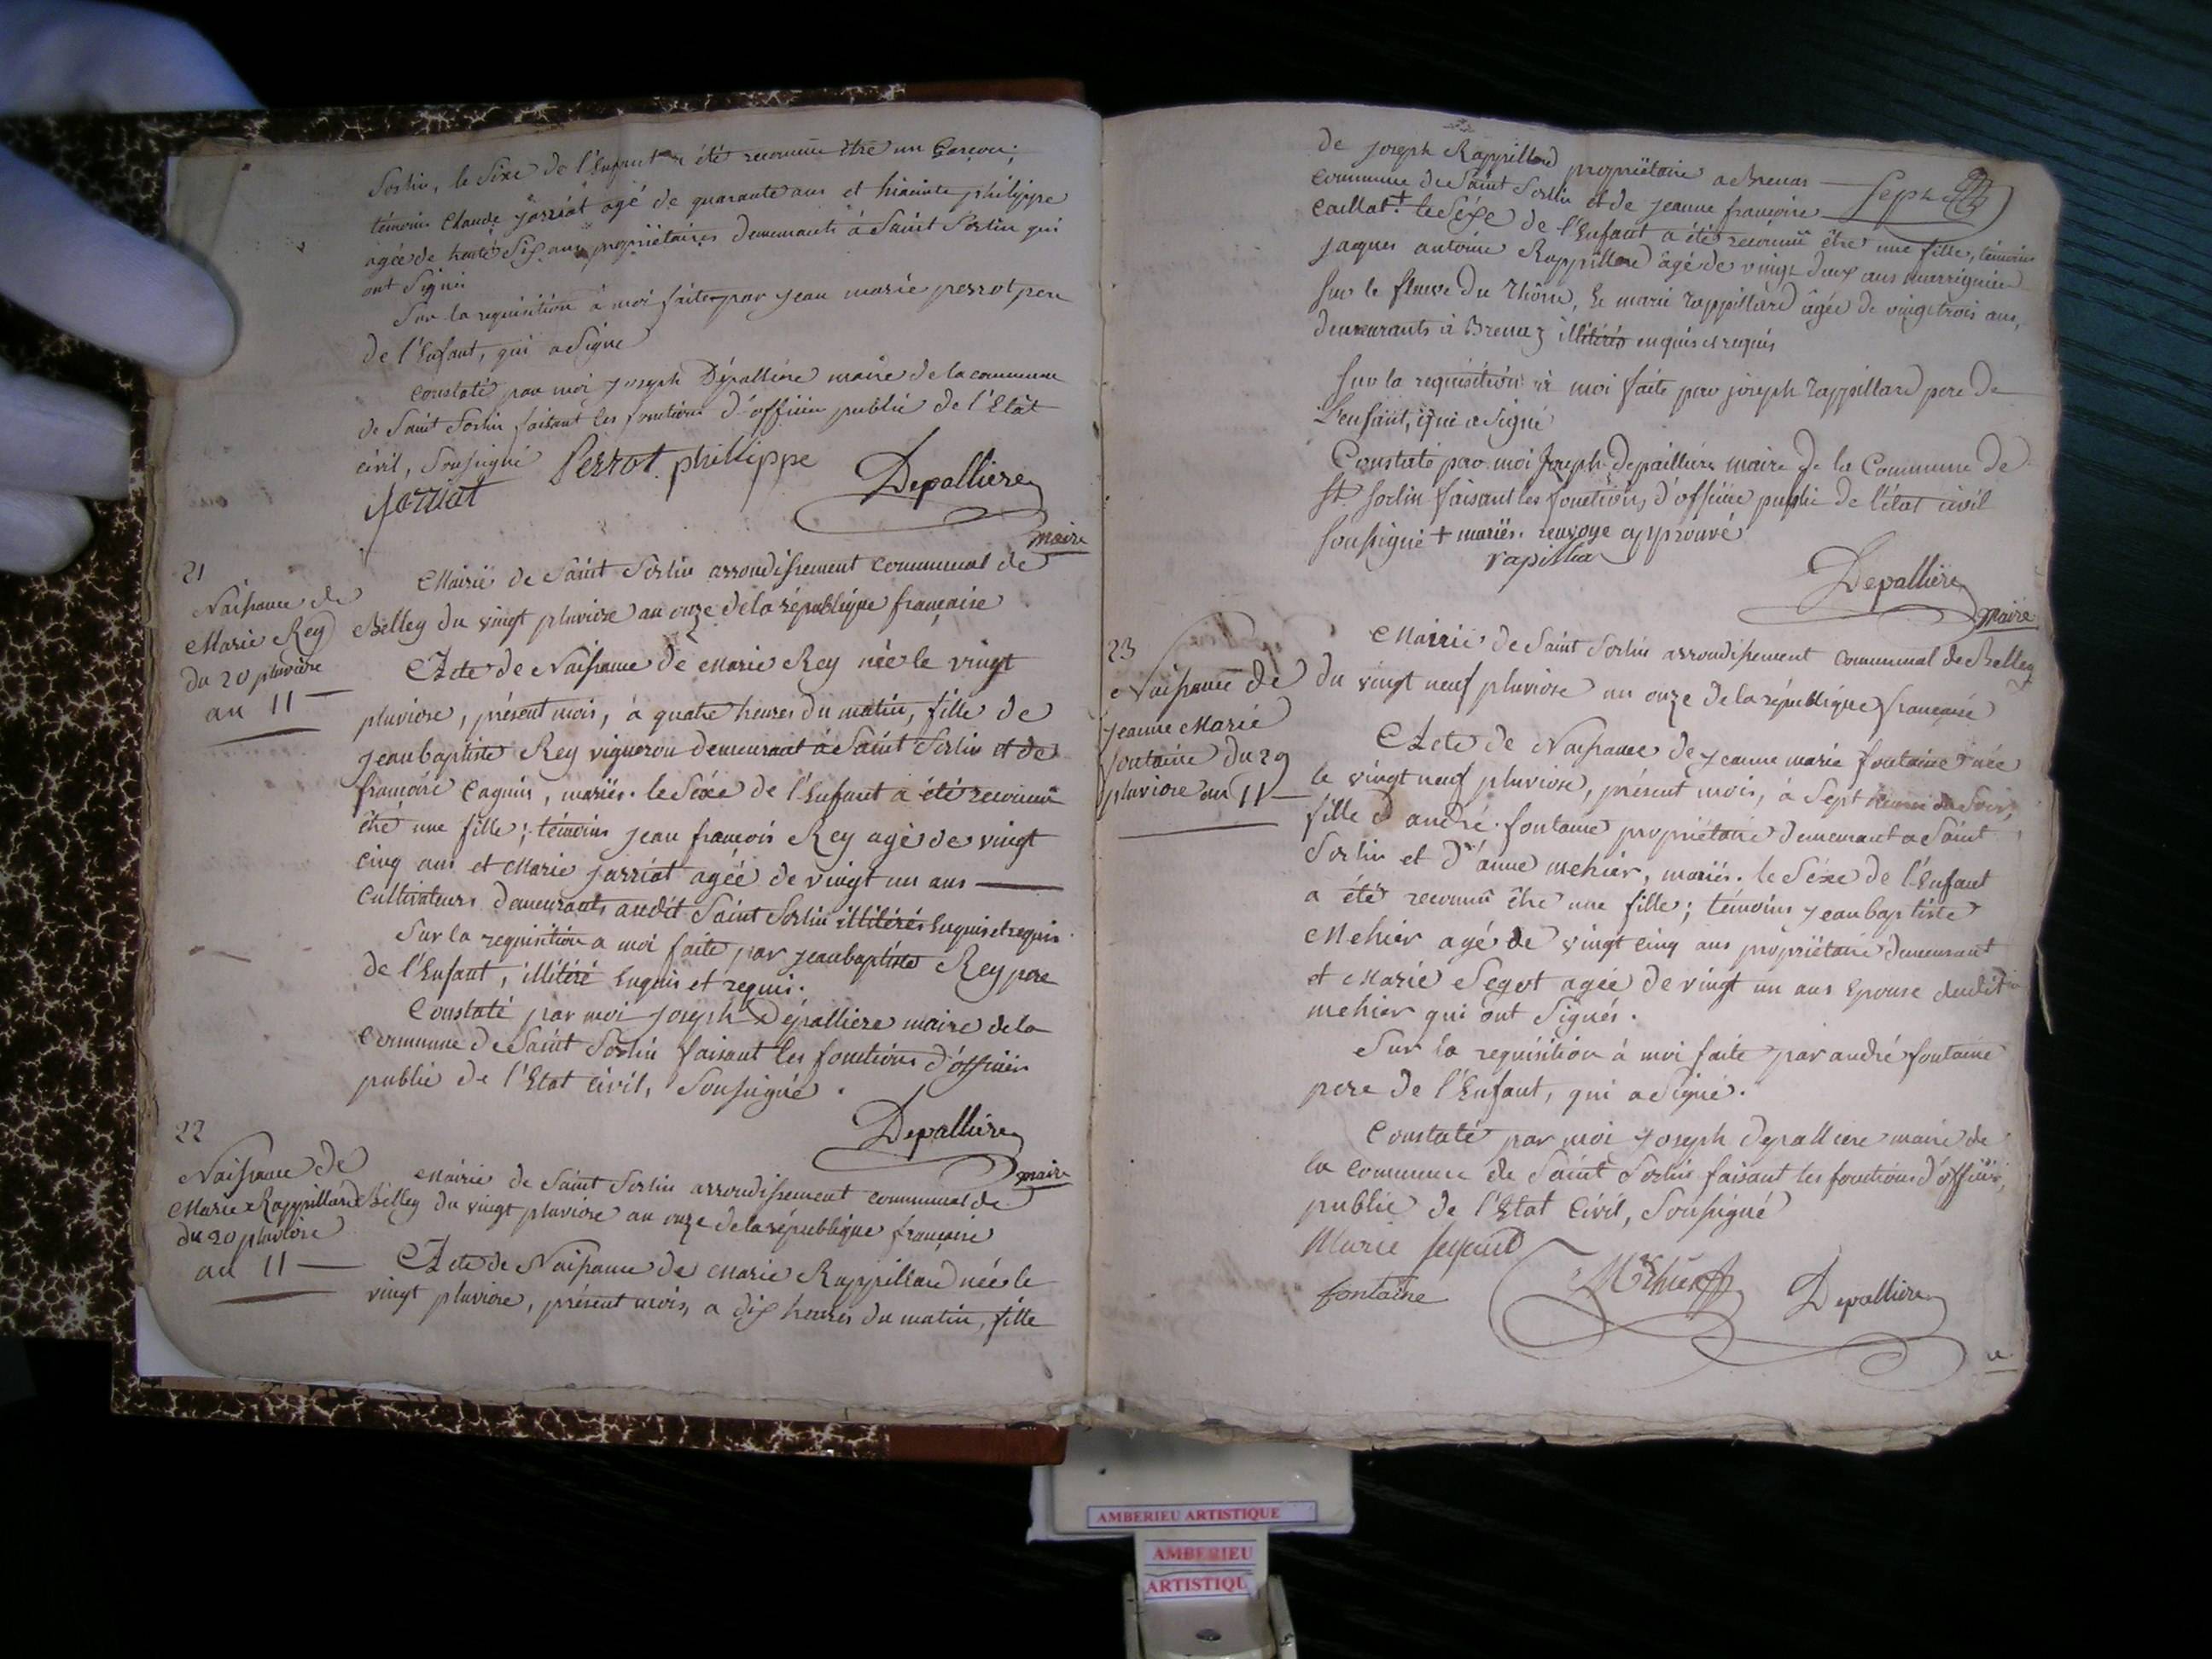 Sorlin, le Sexe de l'Enfant a été reconnu être un Garçon;
témoins Claude Jarriat agé de quarante ans et hiacinte philippe
agée de trente Six ans propriétaires demeurants à Saint Sorlin qui
ont Signé
Sur la requisition à moi faite par Jean marie perrot pere
de l'Enfant, qui a Signé
Constaté par moi Joseph Dépalliere maire de la commune
de Saint Sorlin faisant les fonctions d'officier public de l'Etat
civil, Soussigné Perrot philippe
Jarriat Depalliere
maire
21
Naissance de
Marie Rey
du 20 pluviose
an 11
Mairie de Saint Sorlin arrondissement communal de
Belley du vingt pluviose an onze de la république française
Acte de Naissance de Marie Rey née le vingt
pluviose, présent mois, à quatre heures du matin, fille de
Jean baptiste Rey vigneron demeurant à Saint Sorlin et de
françoise Caguin, mariés. le Séxe de l'Enfant a été reconnu
être une fille; témoins Jean françois Rey agé de vingt
cinq ans et Marie Jarriat agée de vingt un ans
Cultivateurs demeurants audit Saint Sorlin illitérés Enquis et requis
Sur la requisition a moi faite par Jean baptiste Rey pere
de l'Enfant, illitéré Enquis et requis.
Constaté par moi Joseph Dépalliere maire de la
Commune de Saint Sorlin faisant les fonctions d'officier
public de l'Etat Civil, Soussigné.
Depalliere
maire
22
Naissance de
Marie Rappillard
du 20 pluviose
an 11
Mairie de Saint Sorlin arrondissement communal de
Belley du vingt pluviose an onze de la république française
Acte de Naissance de Marie Rappillard née le
vingt pluviose, présent mois, a dix heures du matin, fille
de joseph Rappillard propriétaire a Brenas
commune de Saint Sorlin et de jeanne françoise
Caillat + le Séxe de l'Enfant a été reconnu être une fille, témoins
Jaques antoine Rappillard âgé de vingt deux ans
sur le fleuve du Rhône, & marie rappillard âgée de vingt trois ans,
demeurants à Brenaz illitérés enquis et requis
sur la requisition à moi faite par joseph rappillard pere de
L'enfant, qui a Signé
Constaté par moi Joseph depalliere maire de la Commune de
St. Sorlin faisant les fonctions d'officier public de l'état civil
soussigné + mariés. renvoye approuvé
rapillar
Depalliere
maire
23
Naissance de
Jeanne Marie
fontaine du 29
pluviose an 11
Mairie de Saint Sorlin arrondissement communal de Belley
du vingt neuf pluviose an onze de la république française
Acte de Naissance de Jeanne marie fontaine née
le vingt neuf pluviose, présent mois, à Sept heures du Soir,
fille d'andré fontaine propriétaire demeurant a Saint
Sorlin et d'anne mehier, mariés. le Séxe de l'Enfant
a été reconnu être une fille; témoins Jean baptiste
Mehier agé de vingt cinq ans propriétaire demeurant
et Marie Segot agée de vingt un ans Epouse dudit
mehier qui ont Signés.
Sur la requisition à moi faite par andré fontaine
pere de l'Enfant, qui a Signé.
Constaté par moi Joseph depalliere maire de
la commune de Saint Sorlin faisant les fonctions d'officier
public de l'Etat Civil, Soussigné
Marie
fontaine Mehier Depalliere
AMBERIEU ARTISTIQUE
AMBERIEU
ARTISTIQU